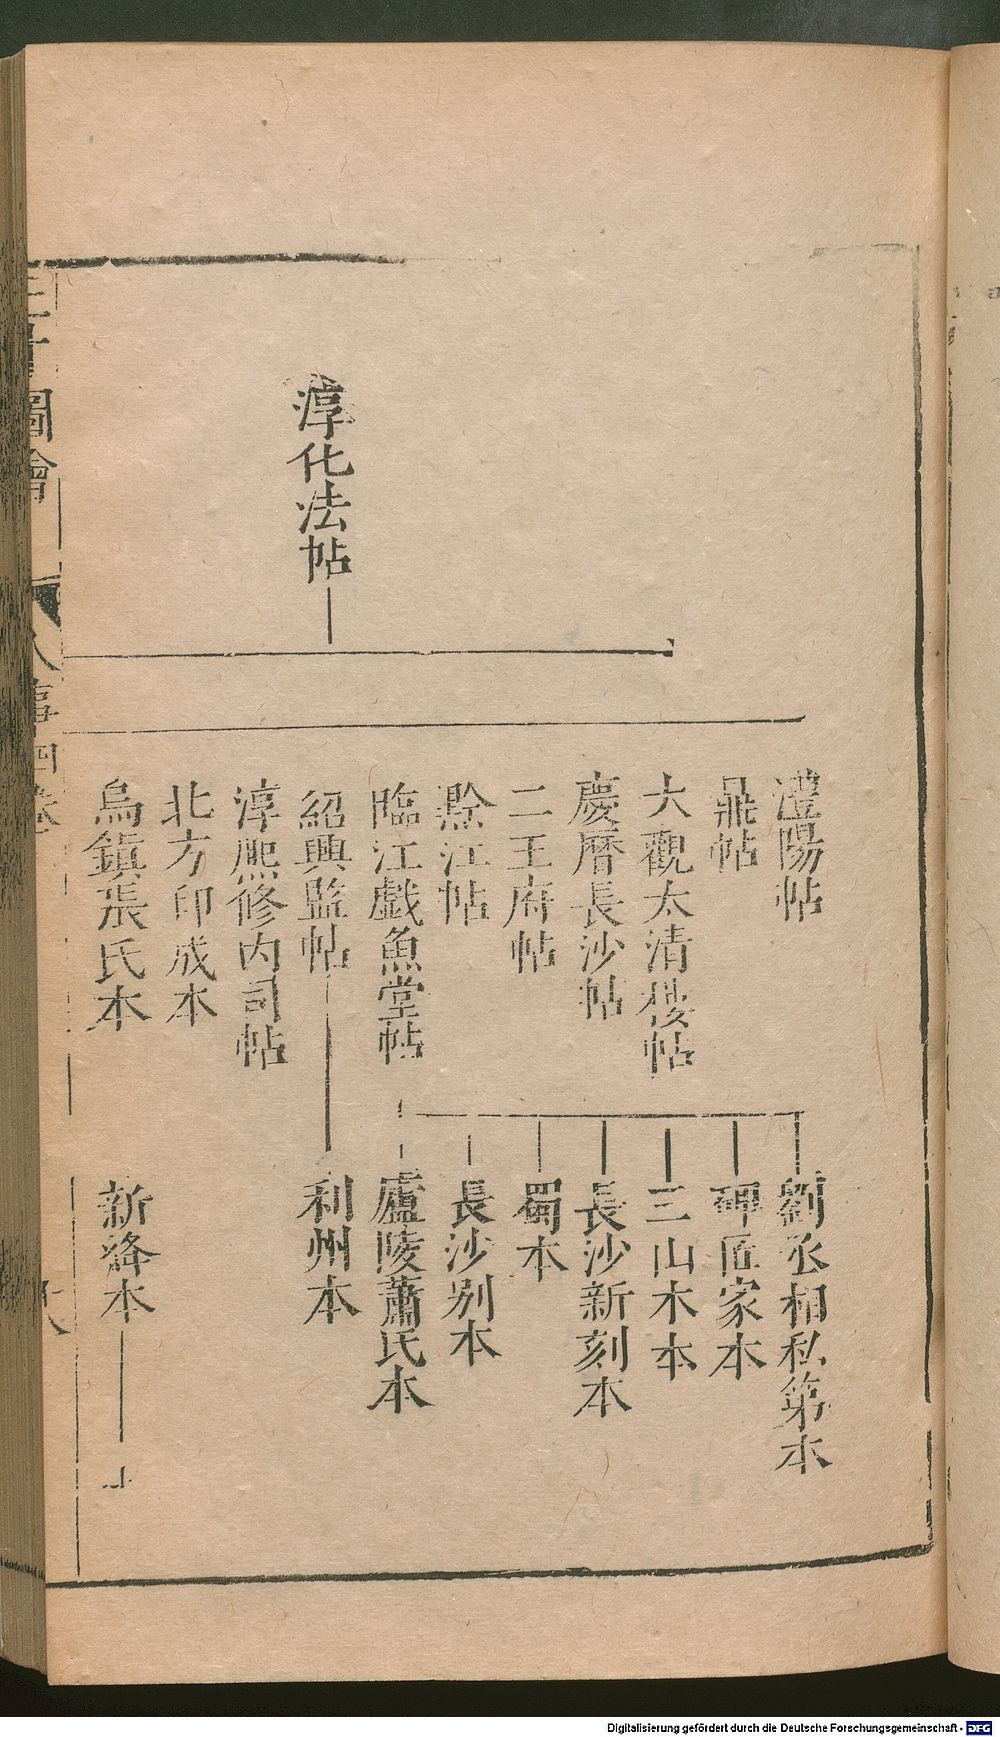 淳化法帖
澧陽帖
鼎帖
大觀太清樓帖
慶曆長沙帖
二王府帖
黔江帖
臨江戲魚堂帖
紹興監帖
淳熈修内司帖
北方印成本
烏鎮張氏本
劉丞相私第本
碑匠家本
三山木本
長沙新刻本
蜀本
長沙别本
廬陵蕭氏本
利州本
新絳本
三才圖會
人事四卷
Digitalisierung gefördert durch die Deutsche Forschungsgemeinschaft - DFG